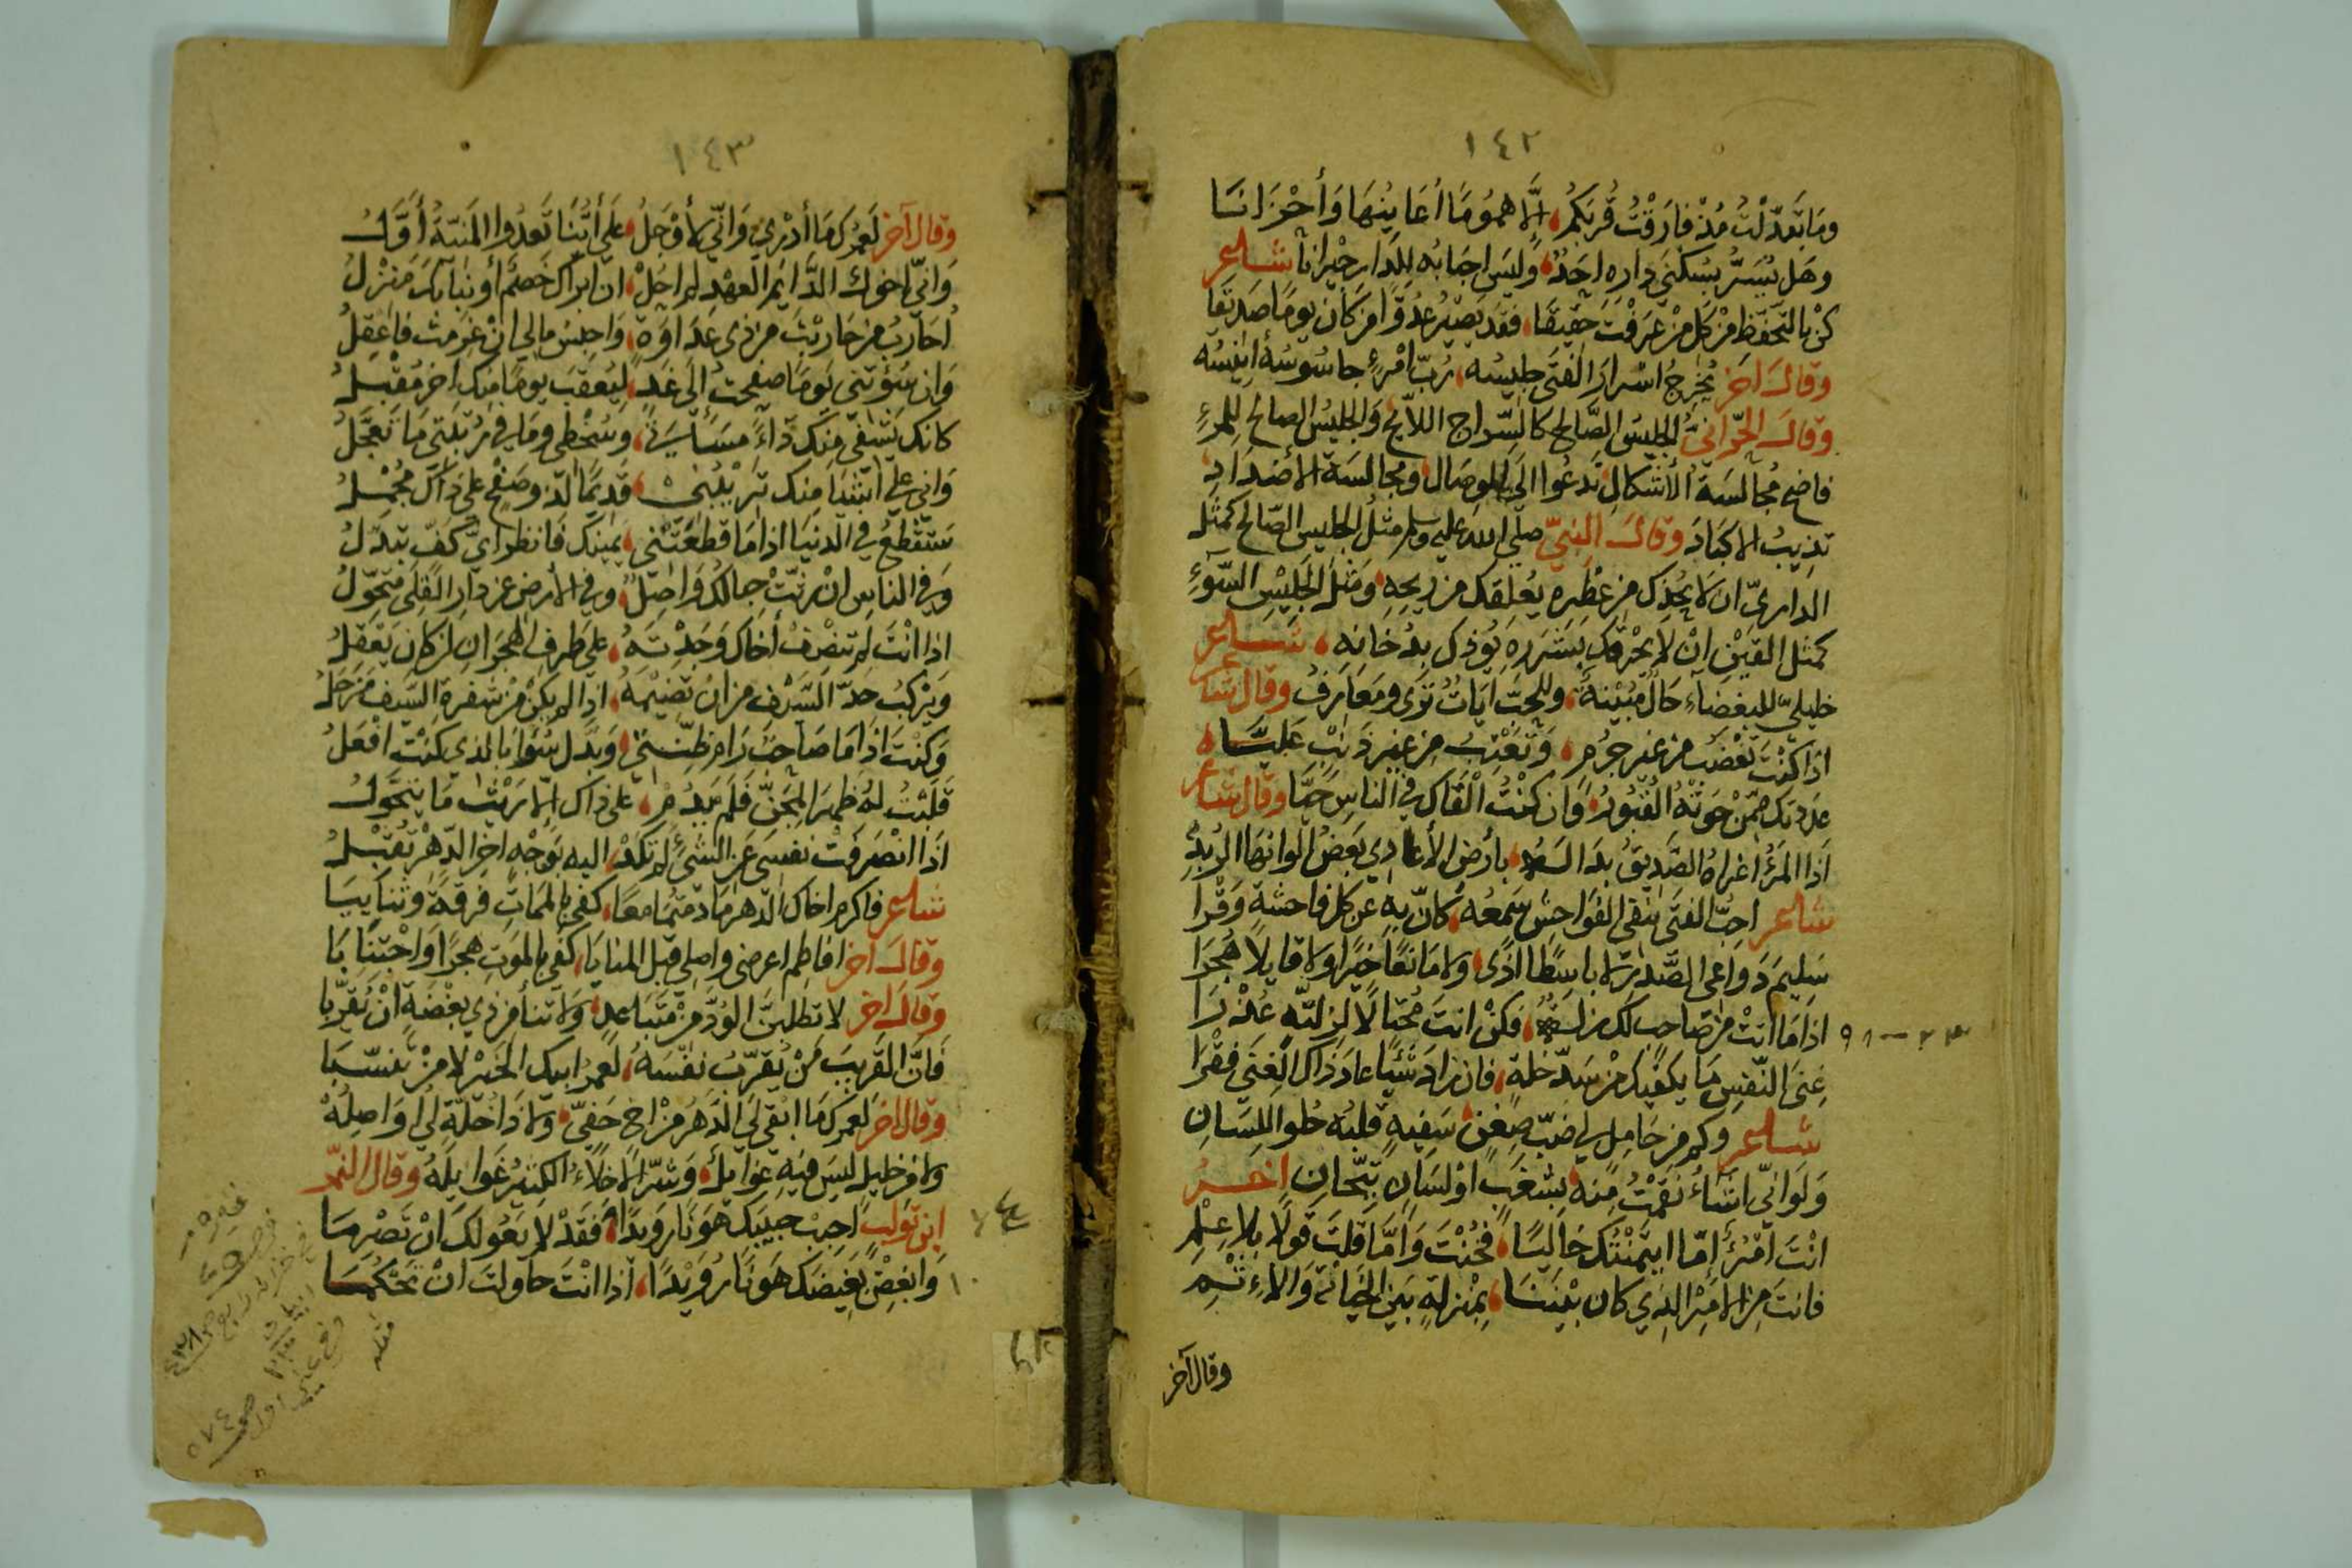 ١٤٢
وما تبدّلتُ مُذْ فارقْتُ قُربَكُم، إلَّا همُومَا أُعَاينُهَا وَأَحْزَانَا
وهَل يُسَرُّ بسُكنىَ داره احَدٌ، وَليَسَ احبَابُه لِلدَار جيْرانَا شاعر
كنْ بالتحَفّظِ مِنْ كل مَنْ عَرفْتَ حَقيقَا، فقَد يَصيْر عدُوًّا مَن كَانَ يومًا صَدِيقَا
وقالَ اخر يُخرِجُ اسْرارَ الفتَى جليسُه، رُبّ امْرءٍ جاسُوسُهُ انيسُه
وقالَ الحرّانىُّ الجليسُ الصَّالح كالسّراج اللّايح، وَالجليسُ الصالح للمرءِ
فاضح مُجالسَة الأشكالِ تدعُوا الَى الوصَال ومجالسَة الاضدَادِ
تذِيبُ الاكبادَ وقالَ النبيّ صلّى الله عليه وسلم مثلُ الجليس الصّالح كمثل
الدارىّ ان لا يُحْذِك من عِطْرِه يُعْلقكَ مِن ريحِهِ، وَمَثلُ الجَليْسِ السَّوءِ
كمثل القَيْن انْ لا يحْرقكَ بشَرَرِه يُوذِكَ بدُخانِه، شاعر
خليليّ للبغضاَءِ حَالٌ مُبيْنةٌ، وللحبّ ايَاتٌ تُرَى ومَعَارِفُ وقال شاعر
اذا كنْتَ تَغْضَبُ من غير جُرْمٍ، وَتَعْتِبُ مِن غير ذَنْبٍ عَلَيَّا
عدَدتكَ ممّنْ حَوتْهُ القُبُورُ، وَان كنْتُ الْقَاكَ في الناسِ حَيَّا وقال شاعر
اذَا المرْءُ اعْراهُ الصَّدِيقُ بدَا لَهُ، بأرْض الأعَادِى بَعَضُ الوانهَا الرُبْدُ
شاعر احبُّ الفتَى ينفى الفوَاحشَ سَمعُه، كأنّ بِهِ عن كل فاحشةٍ وَقْرا
سَليمَ دَواعى الصَّدْرِ لا باسِطًا اذًى، ولا مَانعًا خيْرًا ولا قايلًا هُجْرَا
اذا مَا اتَتْ مِنْ صَاحبٍ لك زلّةٌ، فكنْ انتَ مُحتالًا لزلتّهِ عُذْرَا
٩٨ - ٢٣
غِنَى النّفسِ مَا يكفيكَ مِنْ سَدّ خلةٍ، فان زادَ شَيًا عادَ ذَاكَ الغِنَى فقْرَا
شاعر وكم مِن حَامِلٍ لي ضَبّ ضِغْنٍ، سَفيهٍ قلبُه حُلو اللِسَانِ
وَلَو انّى اشَاءُ نقَمْتُ مِنهُ، بشَغبٍ اوْ لسَانٍ تيّحَانِ اخر
انْتَ امْرُءٌ إمّا ايتَمنْتُكَ خَاليًا، فَخُنْتَ وَامَّا قلتَ قولًا بِلا عِلْمِ
فانتَ مِنَ الامْرِ الذي كان بيْنَنَا، بِمَنزلةٍ بَيْنَ الخيَانَةِ وَالاءثمِ
وقال آخر
١٤٣
وقال آخر لَعمرُكَ مَا أدْرِى وَانّى لأوْجَلُ، على أيّنَا تَعدُوا المَنيّةُ أَوَّلُ
وَانّى اخوكَ الدَّايمُ العَهْدِ لم احُلْ، ان ابراكَ خَصمٌ أو نبَا بكَ مَنْزلُ
أُحَارِبُ من حَاربْتَ مِن ذى عدَاوَة، وَاحبسُ مالى انْ غَرِمتَ فاعقِلُ
وَان سُؤتنى يَومًا صفحتُ الى غَدٍ، ليُعقبَ يومًا منكَ اخرُ مُقْبلُ
كانكَ تَشفى منكَ دَاءً مَسَاءتى، وسُخْطى ومَا فى رَيْبتى مَا تعَجّلُ
وَانى على اشيَا مِنكَ تَرِيْبُنى، قديمًا لذُو صَفْحٍ على ذاكَ مُجْمِلُ
ستقْطعُ فى الدنيَا اذا مَا قطَعَتَنى، يمينَكَ فَانظر اىَّ كَفّ تبَدّلُ
وَفي الناسِ انْ رثّتْ حِبالكَ وَاصِلٌ، وفي الارض عن دَارِ القِلَى متحَوّلُ
اذا انْتَ لم تنْصفْ أخَاكَ وَجَدْتَهُ، على طَرفِ الهجْرَانِ ان كان يَعْقِلُ
وَيَرْكبُ حَدّ السَّيْف من انْ تضيْمَهُ، اذا لم يكنْ مِنْ شَفرة السّيف مَزْحَلُ
وَكنْتُ اذا مَا صَاحبٌ رَام ظِنّتى، وَبدّل سُوَا بالذى كنْت افْعَلُ
قَلَبْتُ لهُ ظَهْرَ المِجَنّ فَلم يدُمْ، على ذاكَ إلّا رَيْثَ مَا يتحَوّلُ
اذَا انصَرفَتْ نفسَى عن الشىءِ لم تكَدْ، اليه بوَجْهٍ اخرَ الدّهْرِ تُقْبلُ
شاعر فاكرم اخاكَ الدّهرَ مَا دمتمَا معًا، كفى بالممَاتِ فرقَةً وتنَايِيَا
وقالَ آخر افاطِم اعرضى واصلى قبل المنايَا، كفَى بالموَت هجرًا وَاجْتنَابَا
وقالَ اخر لا تطلبنَّ الوُدَّ مِنْ متبَاعِدٍ، ولَا تنأ من ذى بغْضَةٍ انْ تَقرَّبا
فَانَّ القَريبَ مَنْ يُقَرِّبُ نَفْسَهُ، لعَمرُ ابيكَ الخَيْر لا مَنْ تنسَّبَا
وقال اخر لعمركَ مَا ابْقى لَى الدَهْرُ مِنْ اخٍ حَفىٍّ، ولا ذَا خُلّةٍ لى اوَاصِلُهْ
ولا من خليلٍ ليسَ فيهِ غوَايلٌ، وَشَرّ الاخلاءِ الكثيْرُ غَوَايلُهُ وقال النمر
ابن تَولبٍ احببْ حبيبَك هَونًا رويدًا، فَقَدْ لا يَعُولكَ انْ تَصْرِمَا
وَابغضْ بَغيضَكَ هَونًا رُوَيْدًا، اذا انْتَ حاولتَ انْ تَحْكُمَا
١٠